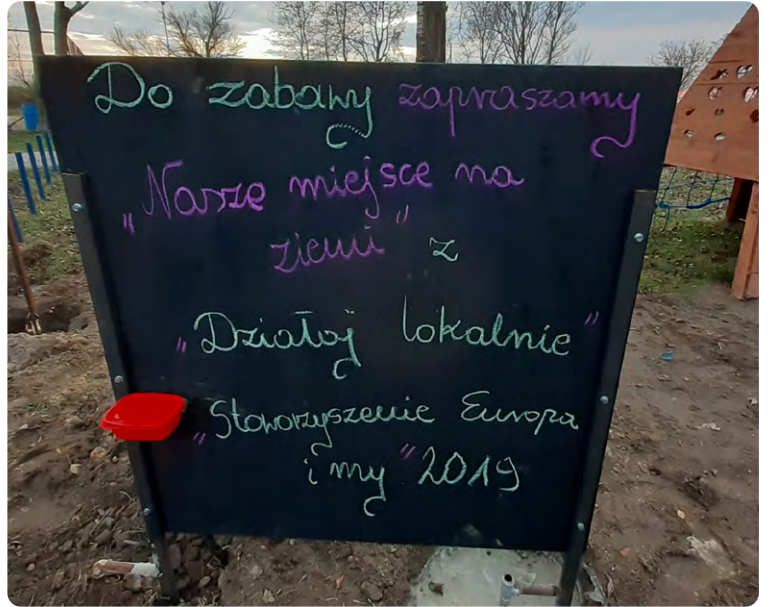 Do zabawy zapraszamy
„Nasze miejsce na
ziemi" z
„Działaj lokalnie"
„Stowarzyszenie Europa
i my" 2019